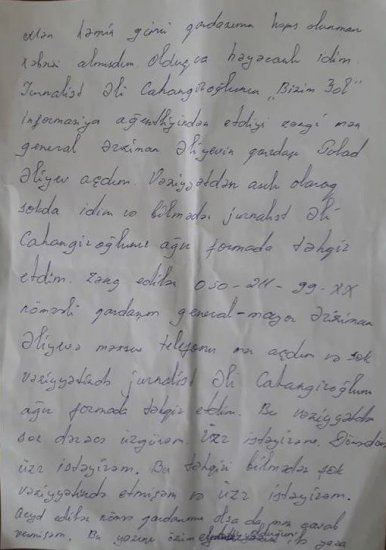 Mən həmin günü qardaşımın həbs olunması
xəbəri almışdım. Olduqca həyəcanlı idim.
Jurnalist Əli Cahangiroğlunun "Bizim Yol"
informasiya agentliyindən etdiyi zəngi mən
general Ərziman Əliyevin qardaşı Polad
Əliyev açdım. Vəziyyətdən asılı olaraq
şokda idim və bilmədən jurnalist Əli
Cahangiroğlunu ağır formada təhqir
etdim. Zəng edilən 050-211-99-XX
nömrəli qardaşım general-mayor Ərziman
Əliyevə məxsus telefonu mən açdım və şok
vəziyyətində jurnalist Əli Cahangiroğlunu
ağır formada təhqir etdim. Bu vəziyyətdən
son dərəcə üzgünəm. Üzr istəyirəm. Dönədönə
üzr istəyirəm. Bu təhqiri bilmədən şok
vəziyyətində etmişəm və üzr istəyirəm.
Qeyd edilən nömrə qardaşımın olsa da, mən cavab
vermişəm. Bu yazını özüm